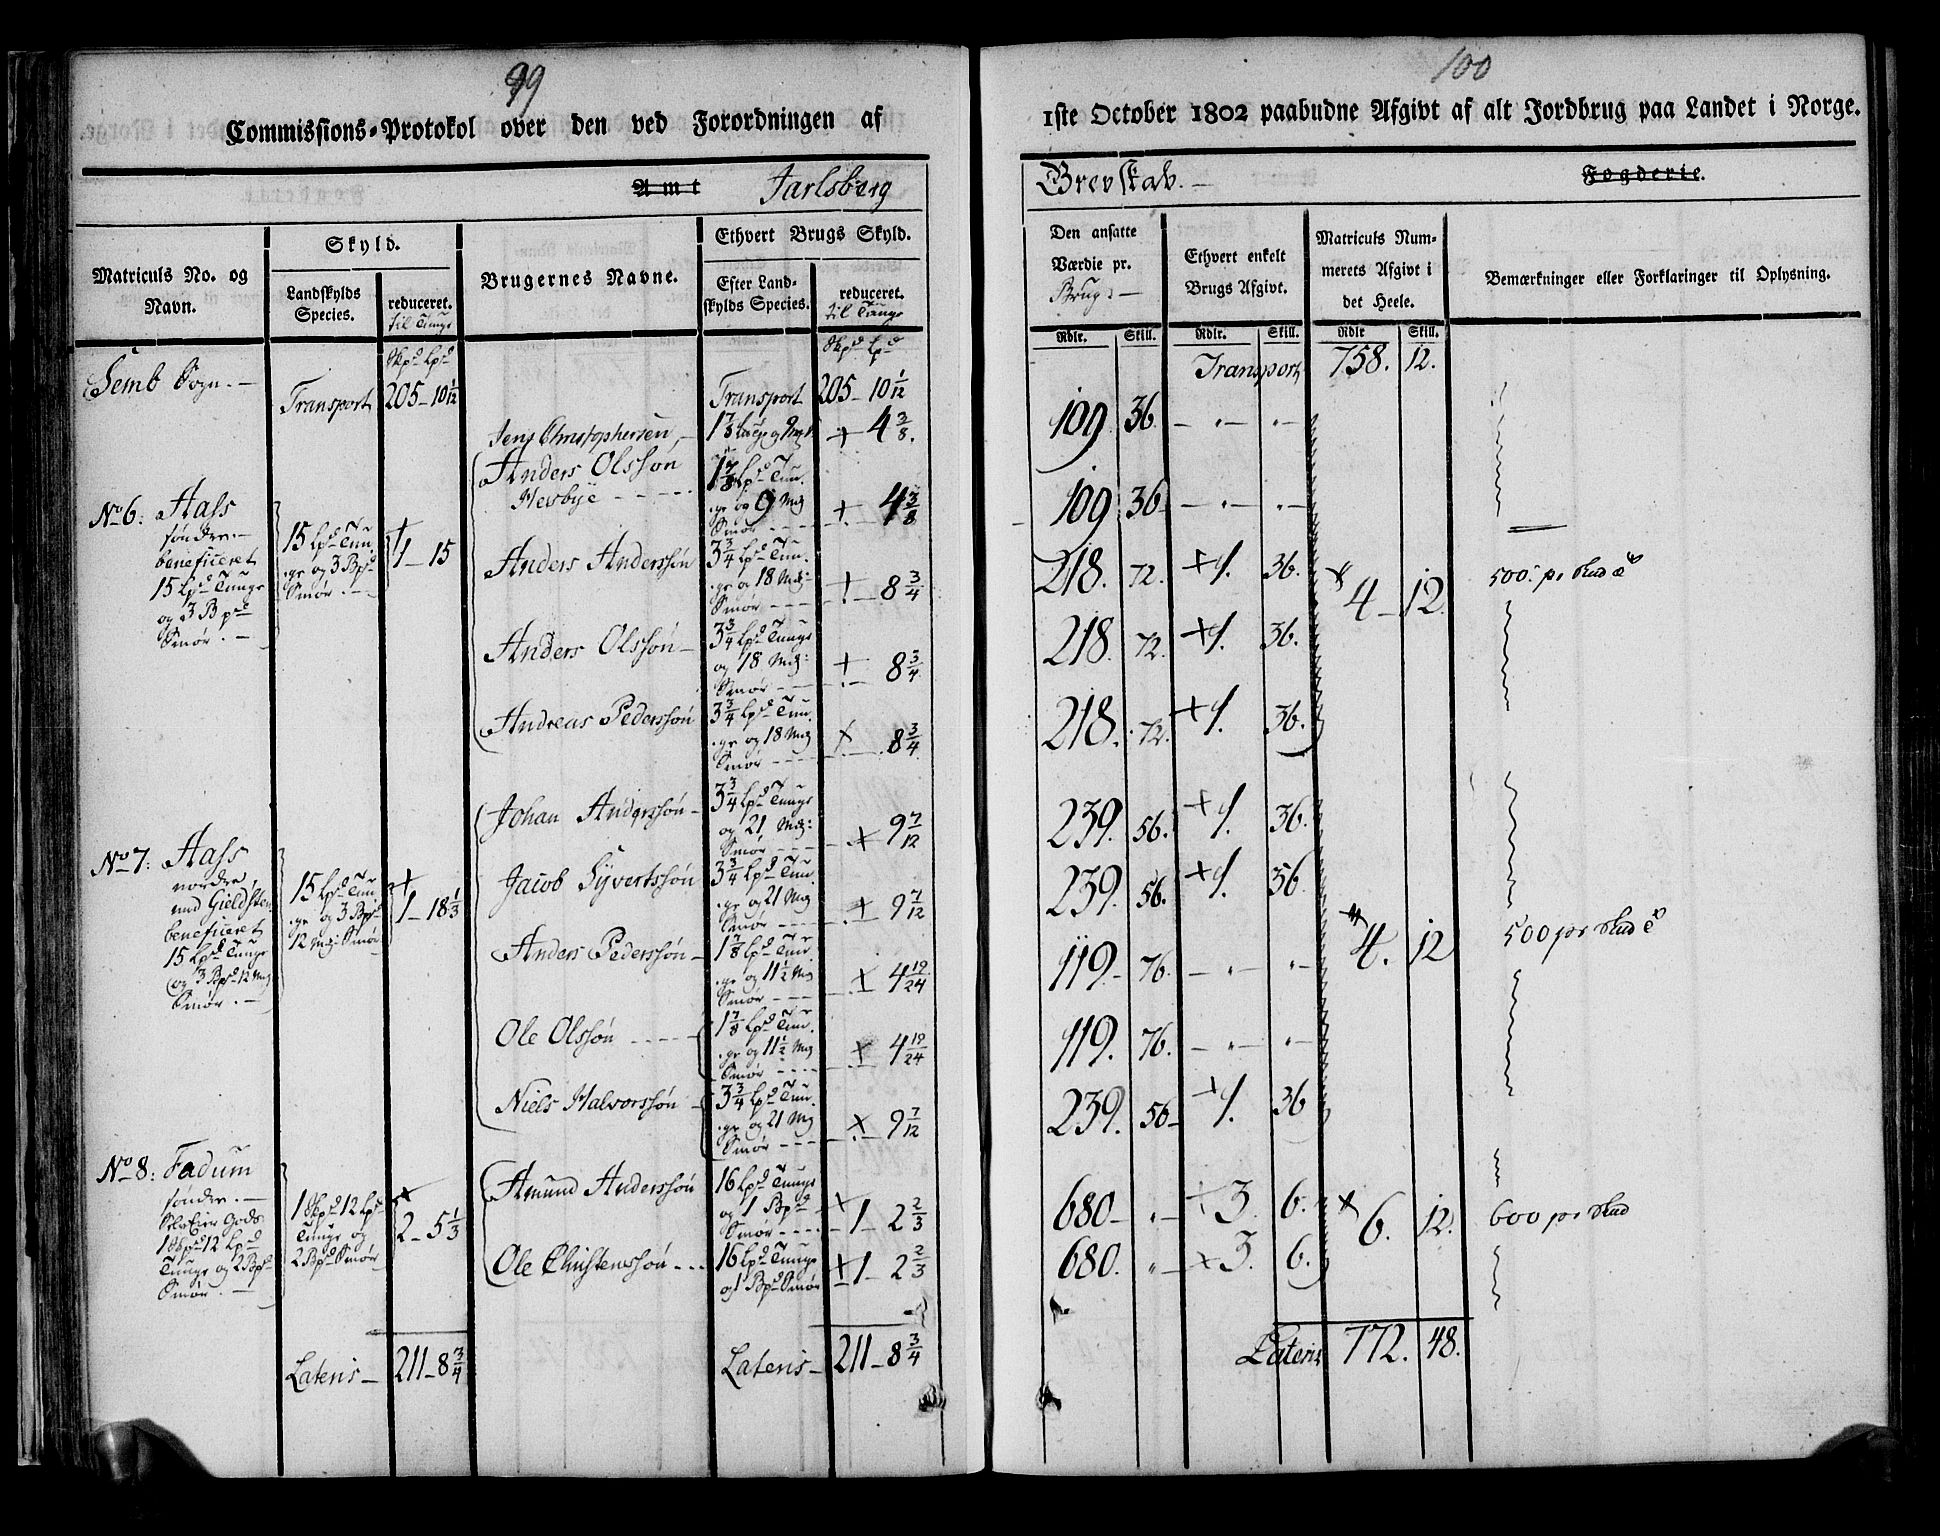 99
Commissions-Protokol over den ved Forordningen af
Amt Jarlsberg
Matriculs No. og Navn.
Skyld.
Landskylds Species.
reduceret. til Tunge
Brugernes Navne.
Ethvert Brugs Skyld.
Efter Landskylds Species.
reduceret. til Tunge
Skpd Lpd
Skpd Lpd
Semb Sogn. —
Transport 205 – 10 1/12
Transport 205 – 10 1/12
Jens Christophersen, — 1 7/8 Tunge og 9 Mk + 4 3/8.
No 6: Hass
søndre. —
beneficeret
15 Lpd Tunge
og 3 Bpd
Smør. —
15 Lpd Tun
ge og 3 Bpd
Smør. —
1 – 15
Anders Olssøn
Hesbye - - - -
1 7/8 Lpd Tun.
ge og 9 Mk
Smør - - -
+ 4 3/8
Anders Anderssøn
3 3/4 Lpd Tun.
ge og 18 Mk:
Smør - - -
+ 8 3/4
Anders Olssøn —
3 3/4 Lpd Tunge
og 18 Mk:
Smør - - -
+ 8 3/4
Andreas Pederssøn
3 3/4 Lpd Tun.
ge og 18 Mk
Smør - - -
+ 8 3/4
No 7: Hass
nordre,
med Gieldsten
beneficeret
15 Lpd Tunge
og 3 Bpd 12 Mk
Smør. —
15 Lpd Tun
ge og 3 Bpd
12 Mk: Smør
1 – 18 1/3
Johan Anderssøn -
3 3/4 Lpd Tunge
og 21 Mk:
Smør - - -
+ 9 7/12
Jacob Syvertssøn
3 3/4 Lpd Tun.
ge og 21 Mk
Smør - - -
+ 9 7/12
Anders Pederssøn -
1 7/8 Lpd Tun.
ge og 11 1/2 Mk
Smør - - -
+ 4 19/24
Ole Olssøn - - - -
1 7/8 Lpd Tun.
ge og 11 1/2 Mk
Smør - - -
+ 4 19/24
Niels Halvorssøn -
3 3/4 Lpd Tun.
ge og 21 Mk
Smør - - -
+ 9 7/12
No 8: Fadum
søndre. —
Gods
1 Skpd 12 Lpd
Tunge og 2 Bpd
Smør. —
1 Skpd 12 Lpd
Tunge og
2 Bpd Smør
2 – 5 1/3
Amund Anderssøn
16 Lpd Tunge
og 1 Bpd
Smør - - -
+ 1 – 2 2/3
Ole Christenssøn - - -
16 Lpd Tunge
og 1 Bpd Smør
+ 1 – 2 2/3
Lateris — 211 – 8 3/4
Lateris — 211 – 8 3/4
100
1ste October 1802 paabudne Afgivt af alt Jordbrug paa Landet i Norge.
Grevskab. — Fogderie.
Den ansatte Værdie pr. Brug: —
Ethvert enkelt Brugs Afgivt.
Matriculs Nummerets Afgivt i det Heele.
Bemærkninger eller Forklaringer til Oplysning.
Rdlr. Skill. Rdlr. Skill. Rdlr Skill.
Transport 758. 12.
109 36 — „ — „ —
109 36 — „ — „ —
218. 72. + 1. 36.
4 – 12. 500: pr Skud
218. 72. + 1. 36.
218. 72. + 1. 36.
239. 56. + 1. 36.
239. 56. + 1. 36.
119 – 76. — „ — „ —
4. 12 500 pr Skud
119. 76. — „ — „ —
239. 56 – + 1. 36
680 – „ – + 3. 6.
6. 12. 600 pr Skud
680. „ – + 3. 6.
Lateris 772. 48.